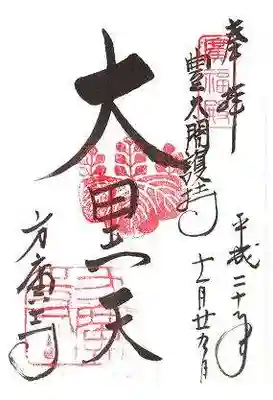 奉拝
豊太閤護持
大黒天
方廣寺
平成二十年
十一月廿九日